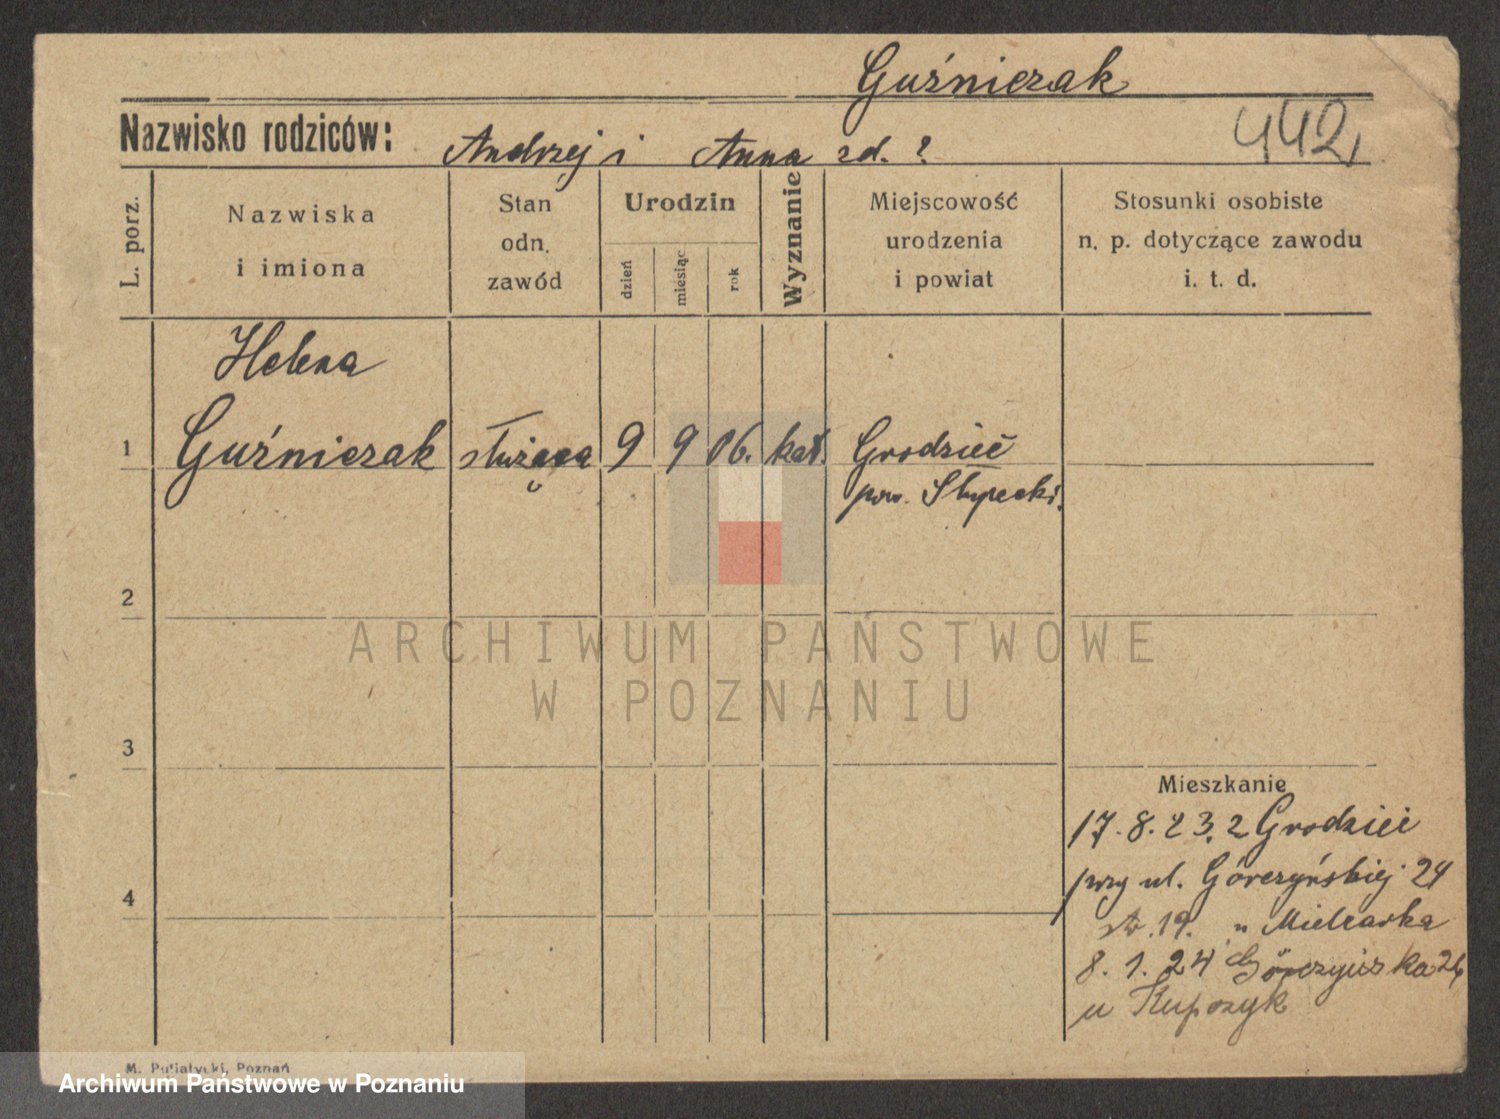 Guźniczak
442
Nazwisko rodziców: Andrzej i Anna zd. ?
L. porz.
Nazwiska i imiona
Stan odn. zawód
Urodzin
dzień
miesiąc
rok
Wyznanie
Miejscowość urodzenia i powiat
Stosunki osobiste n. p. dotyczące zawodu i. t. d.
Helena
1 Guźniczak służąca 9 9 06. kat. Grodzieć
pow. Słupecki.
2
ARCHIWUM PAŃSTWOWE
W POZNANIU
3
Mieszkanie
17.8.23. z Grodziei
przy ul. Górczyńskiej 24
4
str. 19. u Mielcarka
8.1.24 Górczyńska 24
u Kupczyk
M. Putiatycki, Poznań
Archiwum Państwowe w Poznaniu